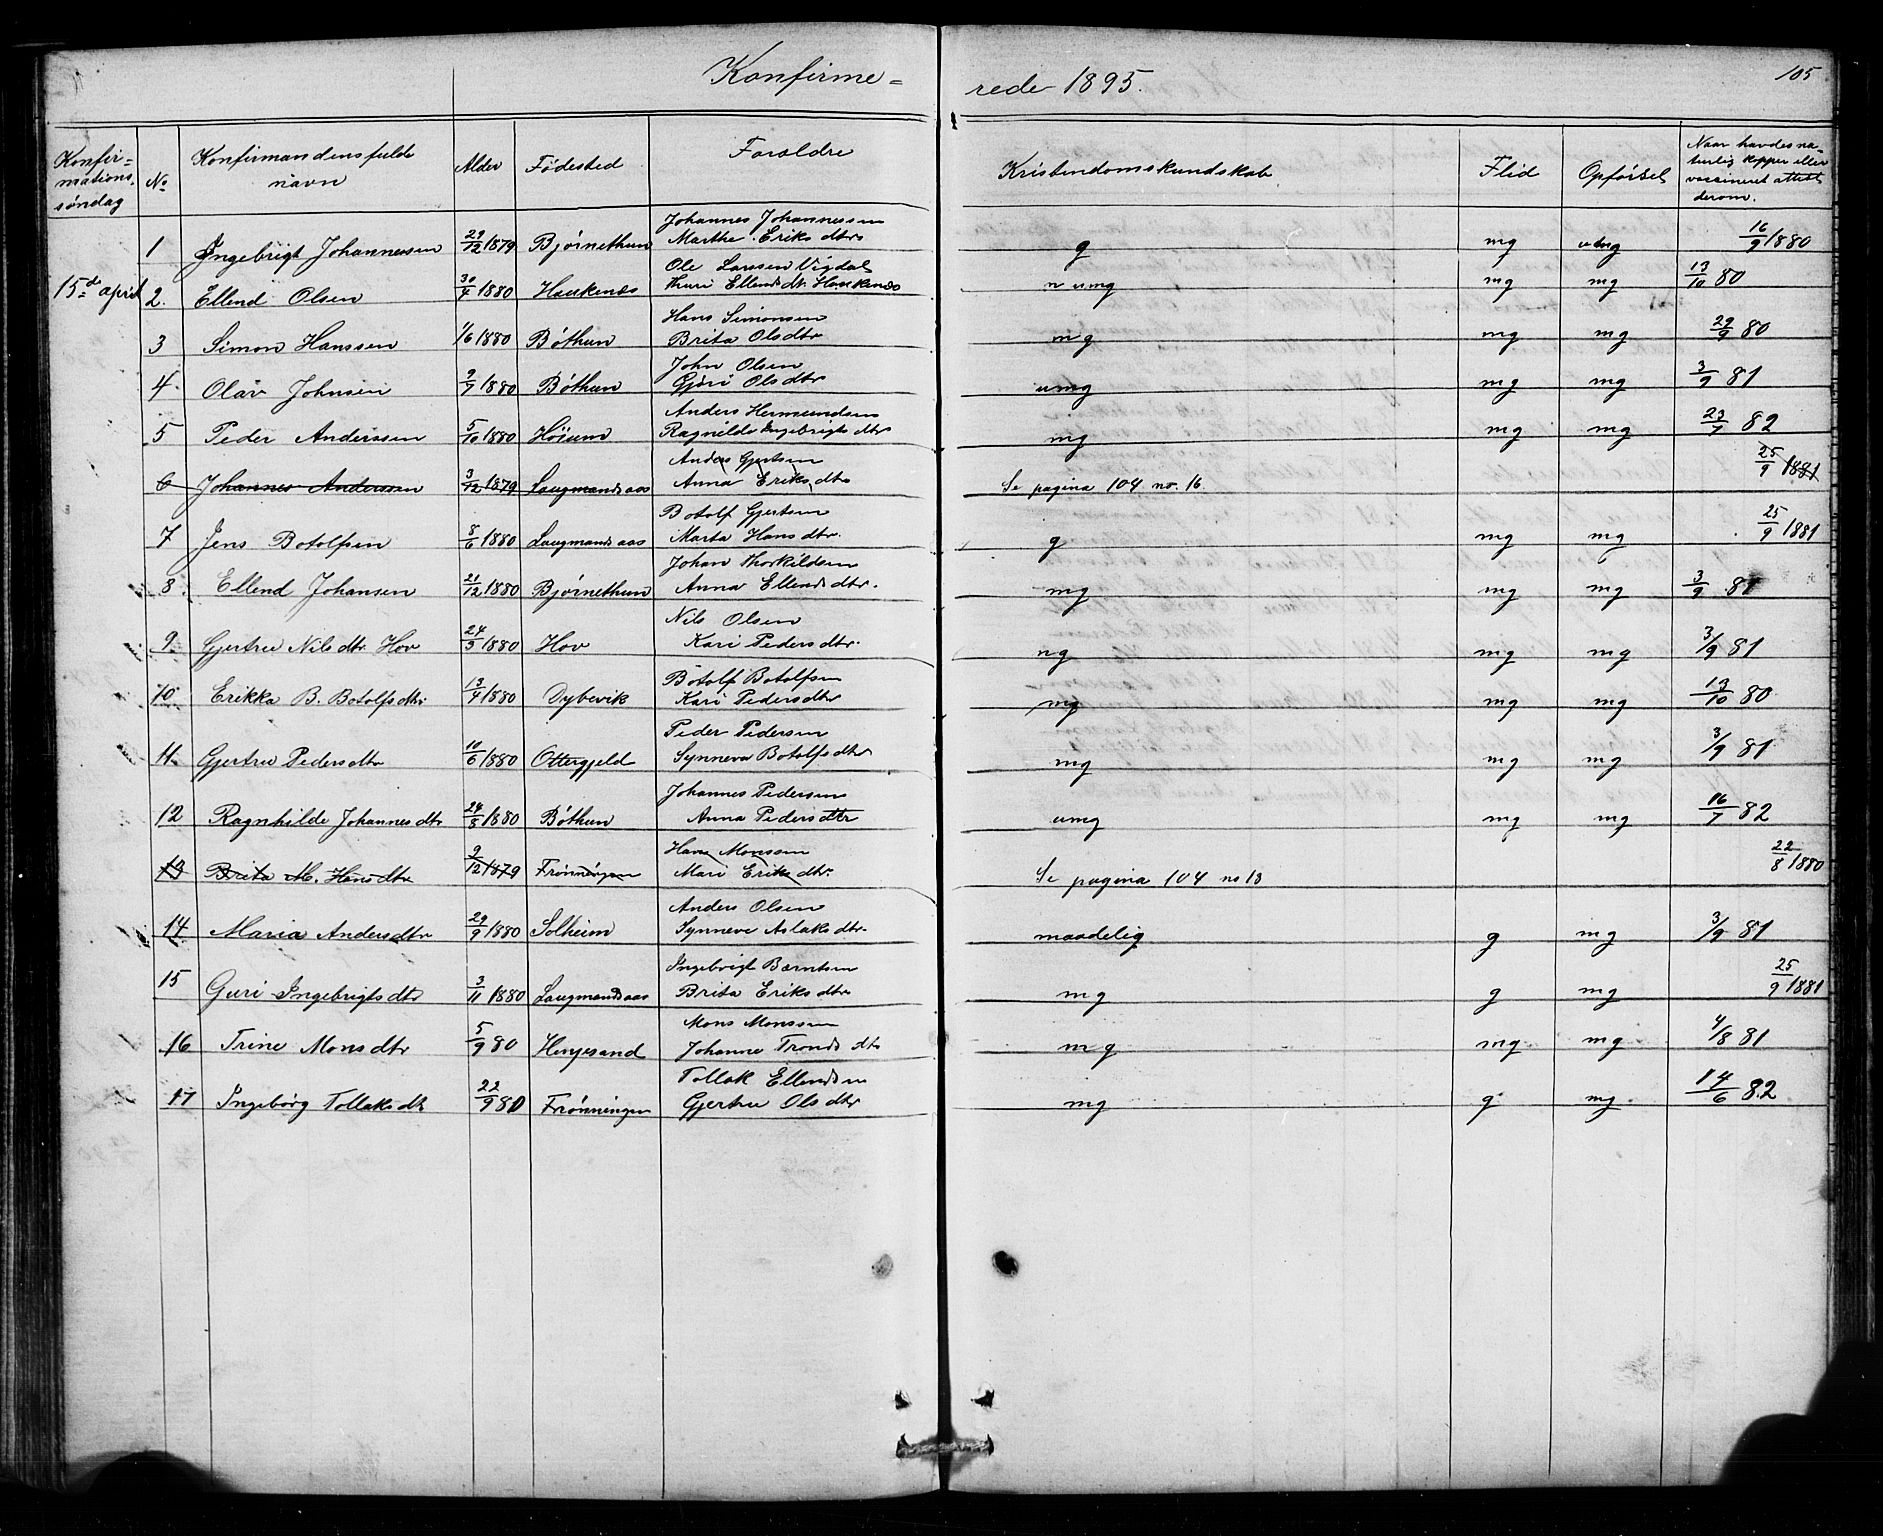 Konfirme=
rede 1895.
105
Konfir=
mations.
søndag
No
Konfirmandens fulde
navn
Alder
Fødested
Forældre
Kristendomskundskab
Flid
Opførsel
Naar havdes na-
turlig kopper eller
vaccineret attest
derom.
Johannes Johannessen
1 Ingebrigt Johannessen 29/12 1879 Bjørnethun Marthe Eriksdtr g mg mg 16/9 1880
Ole Larssen Vigdal
15de april 2. Ellend Olsen 30/4 1880 Haukenæs Thuri Ellendsdtr. Haukenæs umg mg mg 13/10 80
Hans Simonsen
3 Simon Hanssen 1/6 1880 Bøthun Brita Olsdtr mg mg mg 29/9 80
John Olsen
4. Olav Johnsen 9/9 1880 Bøthun Gjøri Olsdtr umg mg mg 3/9 81
Anders Hermundsen
5 Peder Anderssen 5/10 1880 Høium Ragnilde Ingebrigtsdtr mg mg mg 23/7 82
Anders Gjertsen
6 Johannes Anderssen 3/12 1879 Laugmandsaas Anna Eriksdtr Se pagina 104 no. 16. 25/9 1881
Botolf Gjertsen
7 Jens Botolfsen 8/6 1880 Laugmandsaas Marta Hansdtr. g mg mg 25/9 1881
Johan Thorkildsen
8. Ellend Johansen 21/12 1880 Bjørnethun Anna Ellendsdtr. mg mg mg 3/9 81
Nils Olsen
9. Gjertru Nilsdtr. Hov 24/3 1880 Hov Kari Pedersdtr. mg mg mg 3/9 81
Botolf Botolfsen
10. Erikka B. Botolfsdtr 13/4 1880 Dybevik Kari Pedersdtr mg mg mg 13/10 80
Peder Pedersen
11. Gjertru Pedersdtr 10/6 1880 Ottergjeld Synneva Botolfsdtr mg mg mg 3/9 81
Johannes Pedersen
12 Ragnhilde Johannesdtr 24/8 1880 Bøthun Anna Pedersdtr umg mg mg 16/7 82
Hans Monssen
13 Brita M. Hansdtr 9/12 1879 Frønningen Mari Eriksdtr. Se pagina 104 no 13 22/8 1880
Anders Olsen
14 Maria Andersdtr 29/9 1880 Solheim Synneve Aslaksdtr. maadelig g mg 3/9 81
Ingebrigt Berntsen
15 Guri Ingebrigtsdtr 3/11 1880 Laugmandsaas Brita Eriksdtr mg g mg 25/9 1881
Mons Monssen
16 Trine Monsdtr 5/9 80 Henjesand Johanne Trondsdtr mg mg mg 4/8 81
Tollak Ellendsen
17 Ingebørg Tollaksdtr 22/9 80 Frønningen Gjertru Olsdtr mg g mg 14/6 82